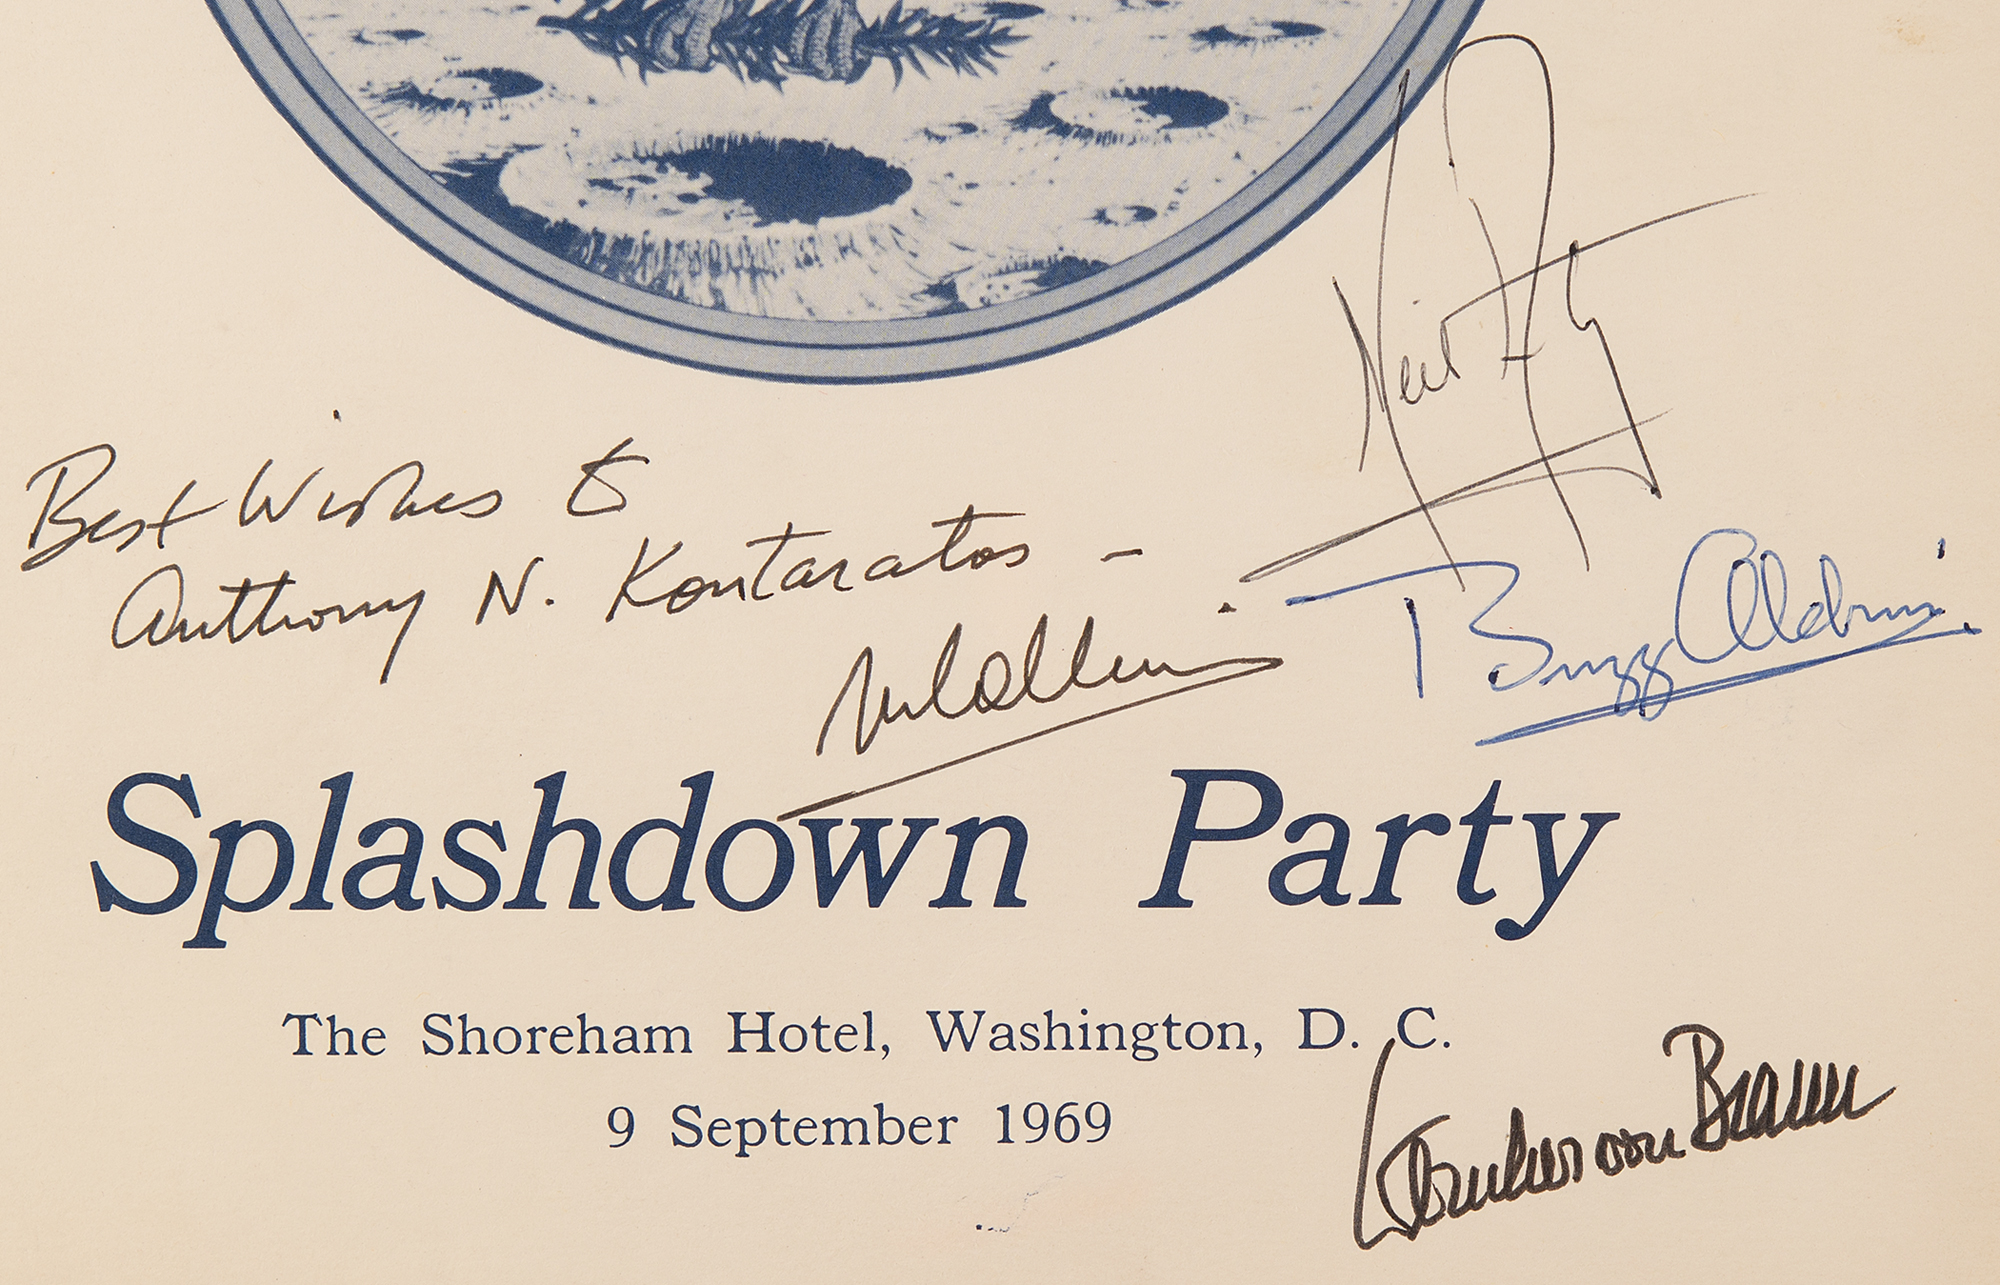 Neil Armstrong
Best Wishes to
Anthony N. Kontaratos –
M Collins
Buzz Aldrin
Splashdown Party
The Shoreham Hotel, Washington, D. C.
9 September 1969
Wernher von Braun